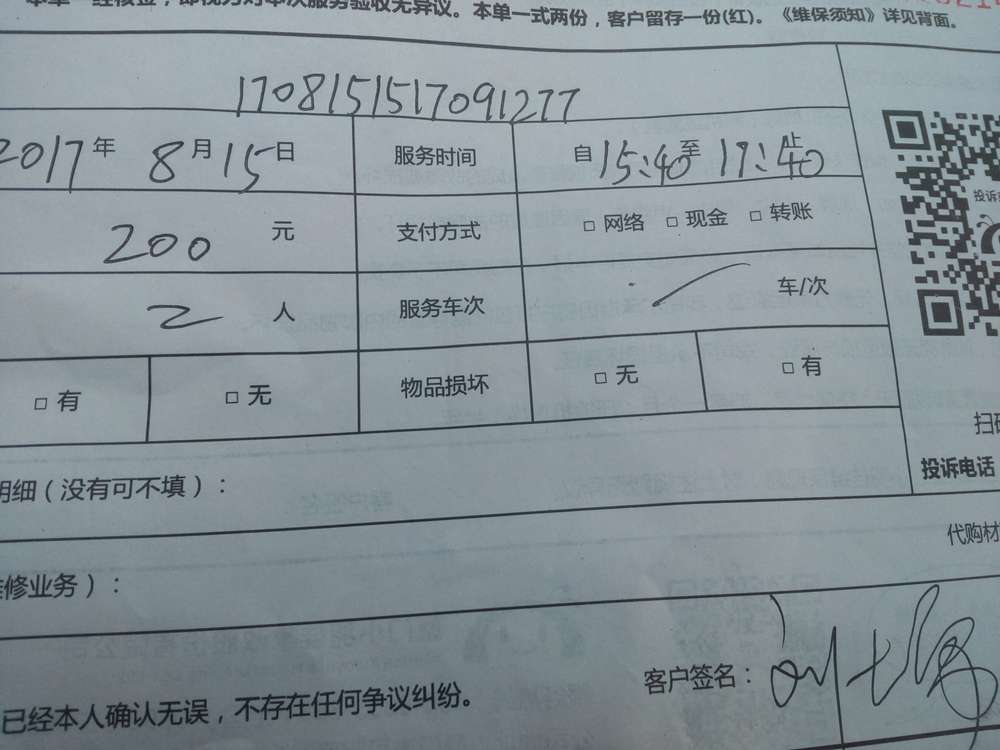 本单一经核查,即视为对本次服务验收无异议。本单一式两份,客户留存一份(红)。《维保须知》详见背面。
1708151517091277
2017年8月15日 服务时间 自15:40至17:40止
200元 支付方式 □ 网络 □ 现金 □ 转账
投诉
2人 服务车次 车/次
□ 有 □ 无 物品损坏 □ 无 □ 有
扫
投诉电话
明细(没有可不填):
代购材
修业务):
客户签名:
已经本人确认无误,不存在任何争议纠纷。